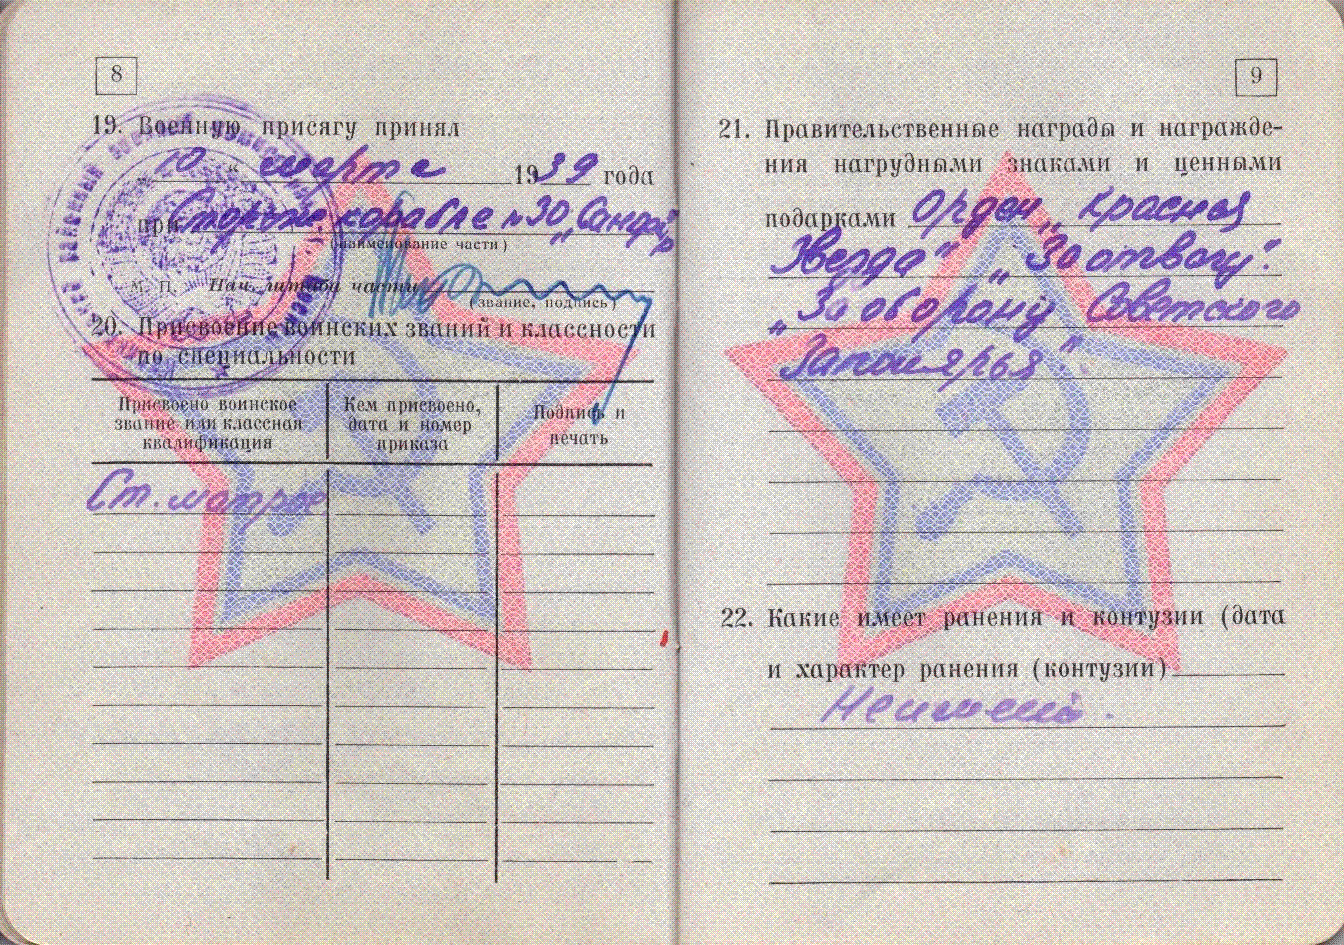 8
19. Военную присягу принял
10 " марта 1939 года
при Сторож. корабле №30 „Сапфир"
(наименование части)
М. П. Нач. штаба части
(звание, подпись)
20. Присвоение воинских званий и классности
по специальности
Присвоено воинское звание или классная квалификация
Кем присвоено, дата и номер приказа
Подпись и печать
Ст. матрос
9
21. Правительственные награды и награжде-
ния нагрудными знаками и ценными
подарками Орден „Красная
Звезда" „За отвагу".
„За оборону Советского
Заполярья"
22. Какие имеет ранения и контузии (дата
и характер ранения (контузии)
Не имеет.